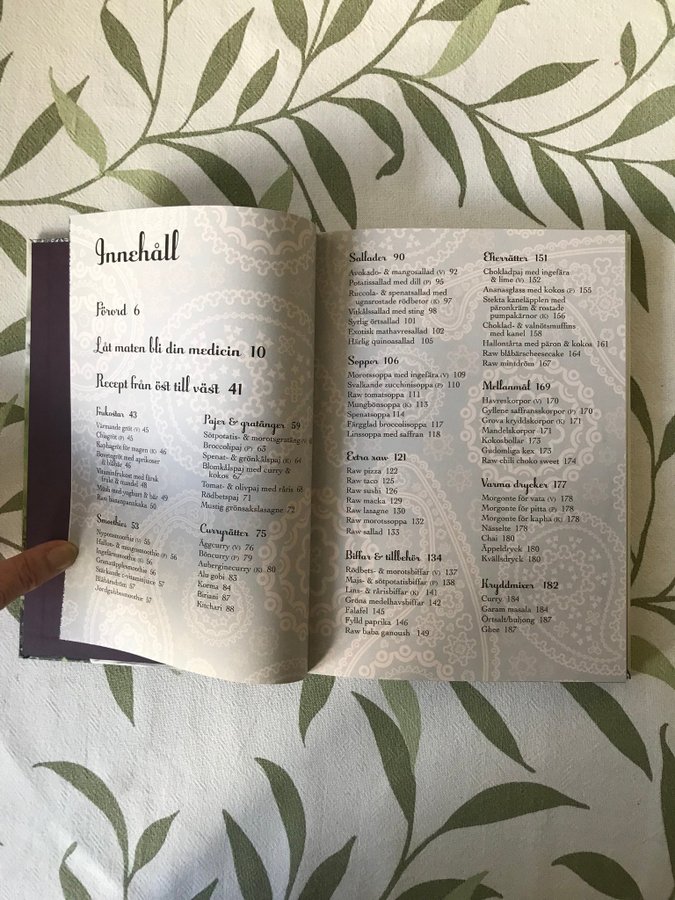 Innehåll
Förord 6
Låt maten bli din medicin 10
Recept från öst till väst 41
Frukostar 43
Värmande gröt (V) 45
Chiagröt (P) 45
Kaphagröt för magen (K) 46
Bovetegröt med aprikoser
& blåbär 46
Vitaminfrukost med färsk
frukt & mandel 48
Müsli med yoghurt & bär 49
Rårösti
Smoothies 53
Nyponsmoothie (V) 56
Hallon- & mangosmoothie (P) 56
Ingefärssmoothie (K) 56
Grönkålssmoothie 57
Stärkande c-vitaminjuice 57
Blåbärsdröm 57
Jordgubbssmoothie 57
Pajer & gratänger 59
Sötpotatis- & morotsgratäng (V)
Broccolipaj (P) 63
Spenat- & grönkålspaj (K) 64
Blomkålspaj med curry &
kokos 67
Tomat- & olivpaj med råris 68
Rödbetspaj 71
Mustig grönsakslasagne 72
Curryrätter 75
Äggcurry (V) 76
Böncurry (P) 79
Auberginecurry (K) 80
Alu gobi 83
Korma 84
Biriani 87
Kitchari 88
Sallader 90
Avokado- & mangosallad (V) 92
Potatissallad med dill (P) 95
Ruccola- & spenatsallad med
ugnsrostade rödbetor (K) 97
Vitkålssallad med sting 98
Syrlig örtsallad 101
Exotisk mathavresallad 102
Härlig quinoasallad 105
Soppor 106
Morotssoppa med ingefära (V) 109
Svalkande zucchinisoppa (P) 110
Raw tomatsoppa 111
Mungbönsoppa (K) 113
Spenatsoppa 114
Färgglad broccolisoppa 117
Linssoppa med saffran 118
Extra raw 121
Raw pizza 122
Raw taco 125
Raw sushi 126
Raw macka 129
Raw lasagne 130
Raw morotssoppa 132
Raw sallad 133
Biffar & tillbehör 134
Rödbets- & morotsbiffar (V) 137
Majs- & sötpotatisbiffar (P) 138
Lins- & rårisbiffar (K) 141
Gröna medelhavsbiffar 142
Falafel 145
Fylld paprika 146
Raw baba ganoush 149
Efterrätter 151
Chokladpaj med ingefära
& lime (V) 152
Ananasglass med kokos (P) 155
Stekta kaneläpplen med
päronkräm & rostade
pumpakärnor (K) 156
Choklad- & valnötsmuffins
med kanel 158
Hallontårta med päron & kokos 161
Raw blåbärscheesecake 164
Raw mintdröm 167
Mellanmål 169
Havreskorpor (V) 170
Gyllene saffransskorpor (P) 170
Grova kryddskorpor (K) 171
Mandelskorpor 171
Kokosbollar 173
Gudomliga kex 173
Raw chili choko sweet 174
Varma drycker 177
Morgonte för vata (V) 178
Morgonte för pitta (P) 178
Morgonte för kapha (K) 178
Nässelte 178
Chai 180
Äppeldryck 180
Kvällsdryck 180
Kryddmixer 182
Curry 184
Garam masala 184
Örtsalt/buljong 187
Ghee 187